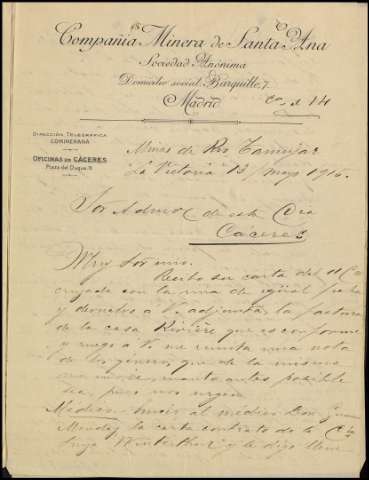 Compañía Minera de Santa Ana
Sociedad Anónima
Domicilio social, Barquillo, 7.
Madrid
DIRECCIÓN TELEGRÁFICA
COMINERANA
OFICINAS EN CÁCERES
Plaza del Duque, 11
Minas de Rio Tamujar
La Victoria 13 Mayo 1916.
Sor Admor de esta Cia
Cáceres
Muy Sor mio.
Recibo su carta del 11
cruzada con la mia de igual fecha
y devuelvo a V. adjunta, la factura
de la casa Rivière que es conforme
y ruego a V. me remita una nota
de los géneros que de la misma
cuanto antes posible
sea, pues nos urgen
Medico al medico Don Juan
Mendez la carta contrato de la Cia
Winterthur y le digo